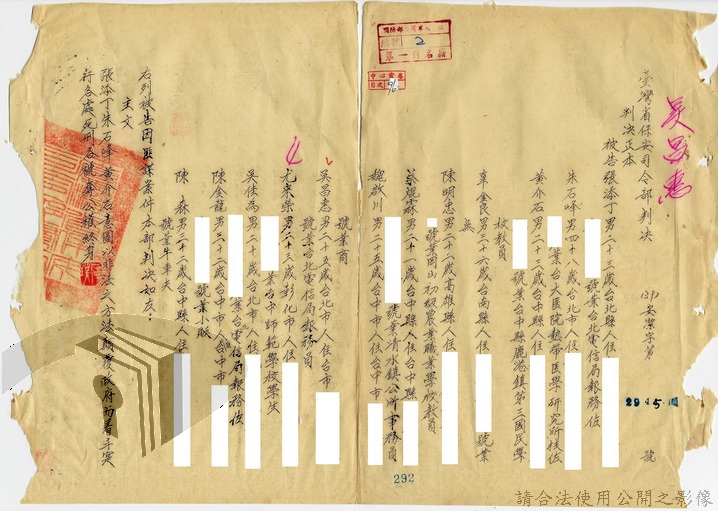 吳昌惠
臺灣省保安司令部判决
安潔字第
2945
號
判决正本
被告張添丁男二十三歲台北縣人住
號業台北電信局報務佐
朱石峰男四十八歲台北市人住
業台大医院熱帶医學研究所技佐
黃介石男二十三歲台中縣人住
業台中縣鹿港鎮第三國民學
校教員
辜金良男三十六歲台南縣人住
號業
無
陳明忠男二十一歲高雄縣人住
號業岡山初級農業職業學校教員
蔡焜霖男二十一歲台中縣人住台中縣
號業清水鎮公所事務員
魏啟川男二十五歲台中市人住台中市
號業商
吳昌惠男二十五歲台北市人住台市
號業台北電信局報務員
尤來榮男二十三歲彰化市人住
業台中師範學校學生
吳佳為男二十歲台北市人住
業台北電信局報務佐
陳金龍男三十二歲台中市人住台中市
號業小販
陳 森男二十二歲台中縣人住
號業牛車夫
右列被告因匪諜案件本部判决如左：
主文
張添丁朱石峰黃介石意圖以非法之方法顛覆政府而着手實
行各處死刑各褫奪公權終身
國防部
2
第一件名冊
292
請合法使用公開之影像